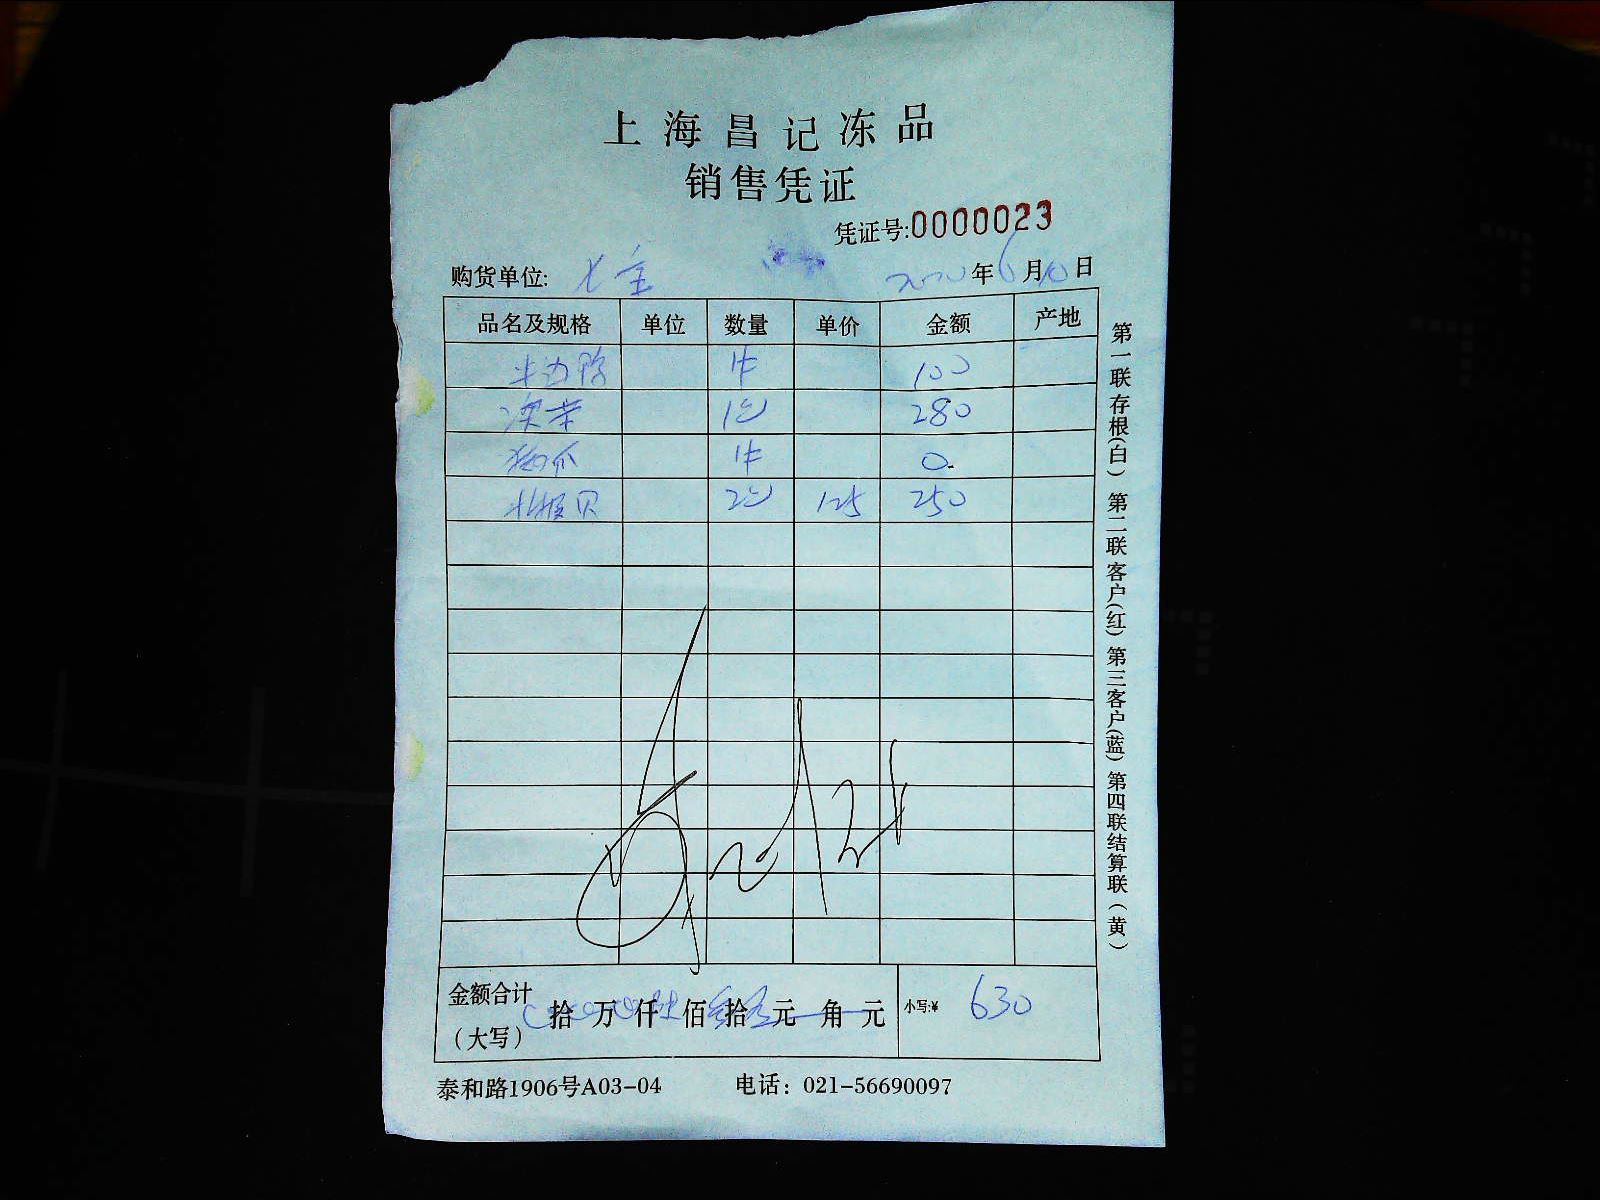 上海昌记冻品
销售凭证
凭证号:0000023
购货单位: 2020年6月10日
品名及规格 单位 数量 单价 金额 产地
半边鸭 1件 100
1包 280
1件 0.
北极贝 2包 125 250
金额合计
(大写) 拾 万 仟 陆佰叁拾 元 角 元 小写:¥ 630
泰和路1906号A03-04 电话: 021-56690097
第一联存根(白) 第二联客户(红) 第三客户(蓝) 第四联结算联(黄)